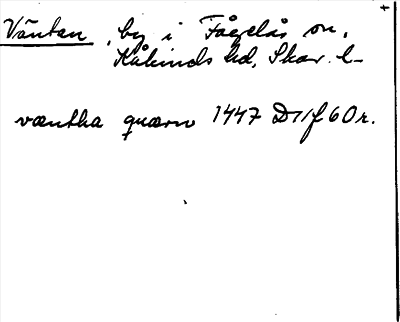 Väntan, by i Fågelås sn,
Kåkinds hd, Skar. l.
væntha quærn 1447 D 11 f 60 r.